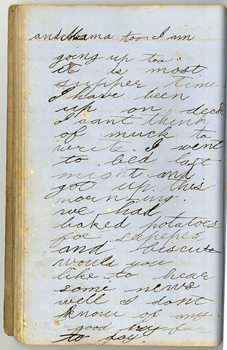 and Mama too I am
going up too.
it is most
supper time
I have been
up on deck
I cant think
of much to
write. I went
to bed last
night and
got up this
mourning.
we had
baked potatoes
for supper
and biscuit
would you
like to hear
some news
well I dont
know of any
good by for
to day.